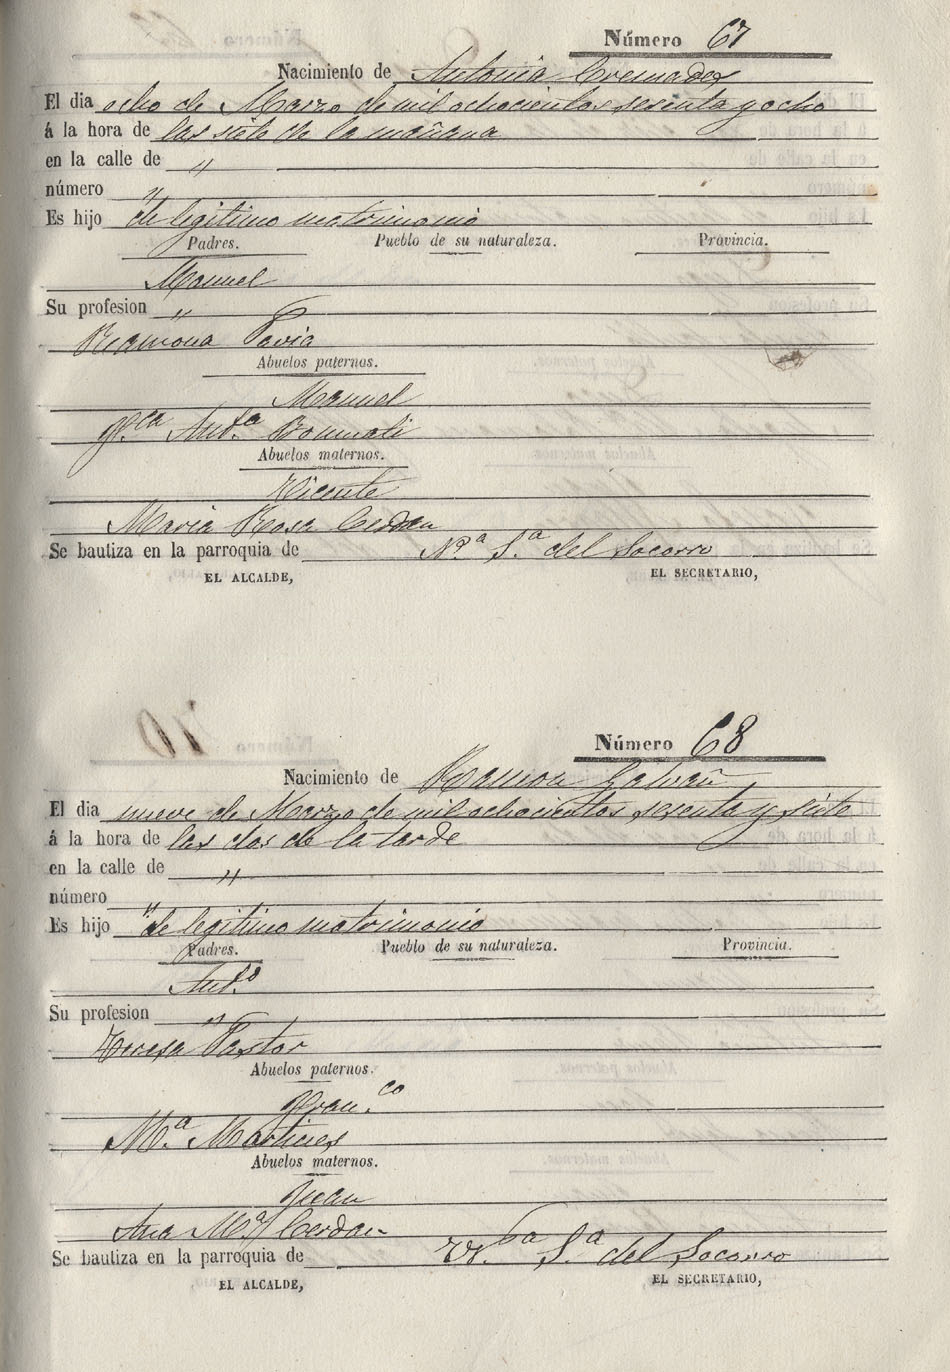 Número 67
Nacimiento de Antonia Cremades
El dia ocho de Marzo de mil ochocientos sesenta y ocho
á la hora de las siete de la mañana
en la calle de "
número "
Es hijo de legitimo matrimonio
Padres. Pueblo de su naturaleza. Provincia.
Manuel
Su profesion "
Ramona Pavia
Abuelos paternos.
Manuel
Ant.ª Bonmati
Abuelos maternos.
Vicente
Maria Rosa Cerdan
Se bautiza en la parroquia de N.ª S.ª del Socorro
EL ALCALDE, EL SECRETARIO,
Número 68
Nacimiento de Ramon Galvañ
El dia nueve de Marzo de mil ochocientos sesenta y siete
á la hora de las dos de la tarde
en la calle de "
número "
Es hijo de legitimo matrimonio
Padres. Pueblo de su naturaleza. Provincia.
Ant.º
Su profesion "
Teresa Pastor
Abuelos paternos.
Fran.co
M.ª Martines
Abuelos maternos.
Juan
Ana M.ª Cerdan
Se bautiza en la parroquia de S.ª del Socorro
EL ALCALDE, EL SECRETARIO,